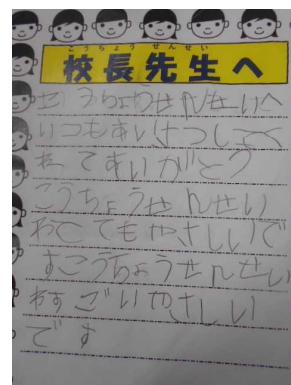 こうちょう せんせい
校長先生へ
こうちょうせんせいへ
いつもあいさつしてく
れてありがとう
こうちょうせんせい
わとてもやさしいで
すこうちょうせんせい
わすごいやさしい
です